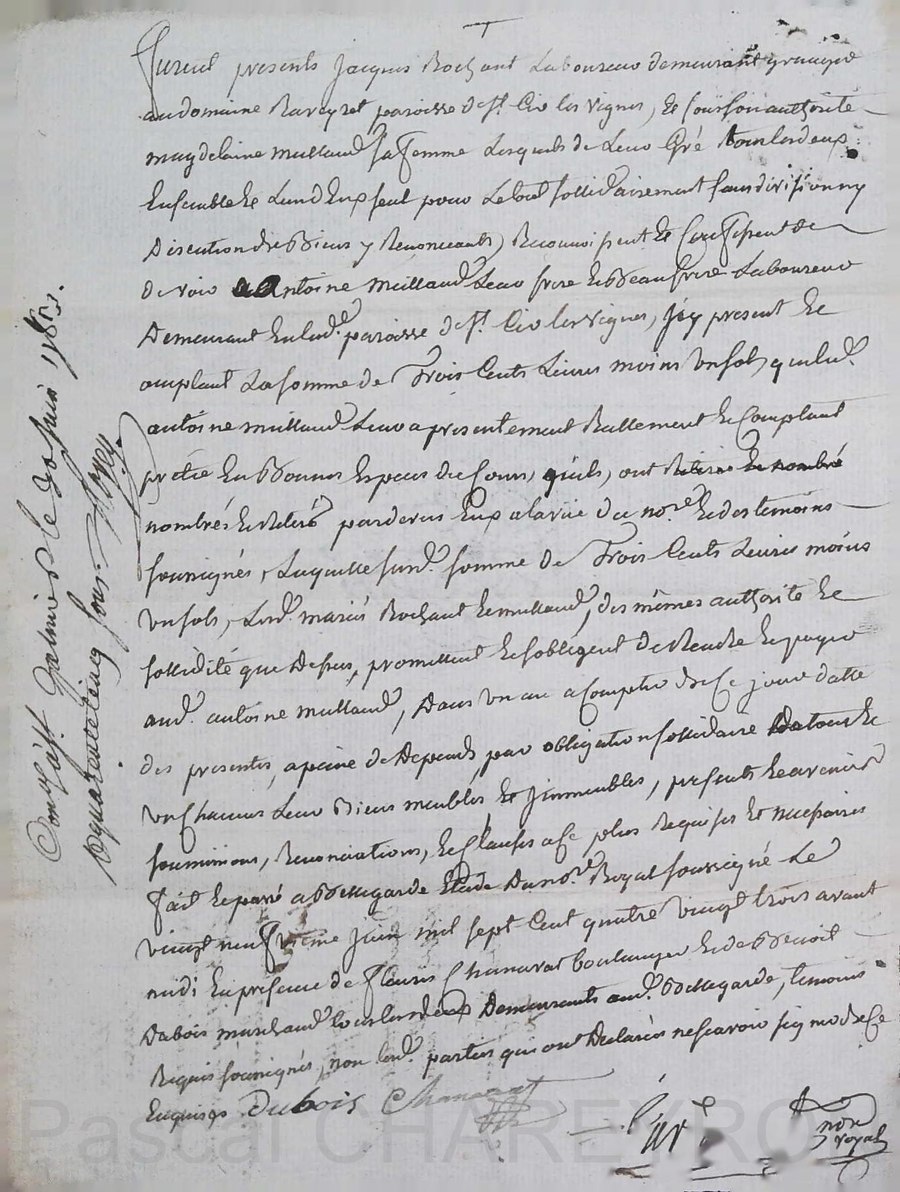 Furent presents Jacques Rochant Laboureur demeurant granger
au domaine Raveyret paroisse de St. Cir les vignes, et sousson authorité
magdelaine meillaud sa femme Lesquels de Leur Gré touslesdeux
Ensemble et Lund Eux seul pour Letout sollidairement sans division ny
Discution de Biens y Renonceants, Reconnoissent et Confessent de
devoir a Antoine meillaud Leur frere et Beaufrere Laboureur
Demeurant en lad.e paroisse de St. Cir les vignes, jcy present et
acceptant La somme de Trois Cents Livres moins un sols, que led.
antoine meillaud Leur a presentement Réellement et Comptant
prêtée En Bonnes Especes de Cours, qu'ils, ont
nombrés et Retiré pardevers Eux a la vüe du no.re et des temoins
sousignés, Laquelle susd. somme de Trois Cents Livres moins
un sols, Lesd. mariés Rochant et meillaud, des mêmes authorité et
sollidité que dessus, promettent et sobligent de Rendre et payer
aud. antoine meillaud, Dans un an a Compter de Ce jour datte
des presentes, apeine de Depends, par obligation sollidaire de tous et
un Chacuns Leur Biens meubles et jmmeubles, presents et avenir
soumissions, Renonciations, et Clauses a Ce plus Requises et necessaires
fait et passé a Bellegarde Etude du no.re Royal soussigné Le
vingt neufvieme juin mil sept Cent quatre vingt trois avant
midi En presence de fleuris Chanavat boulanger et de Benoit
Dubois marchand touslesdeux Demeurants aud. Bellegarde, temoins
Requis sousignés, non lesd. parties qui ont Declarées ne scavoir signer de Ce
Enquises Dubois Chanavat
not
royal
Con.lé à St Galmier le 30 juin 1783.
R quarente Cinq sous
Pascal CHAREYRO